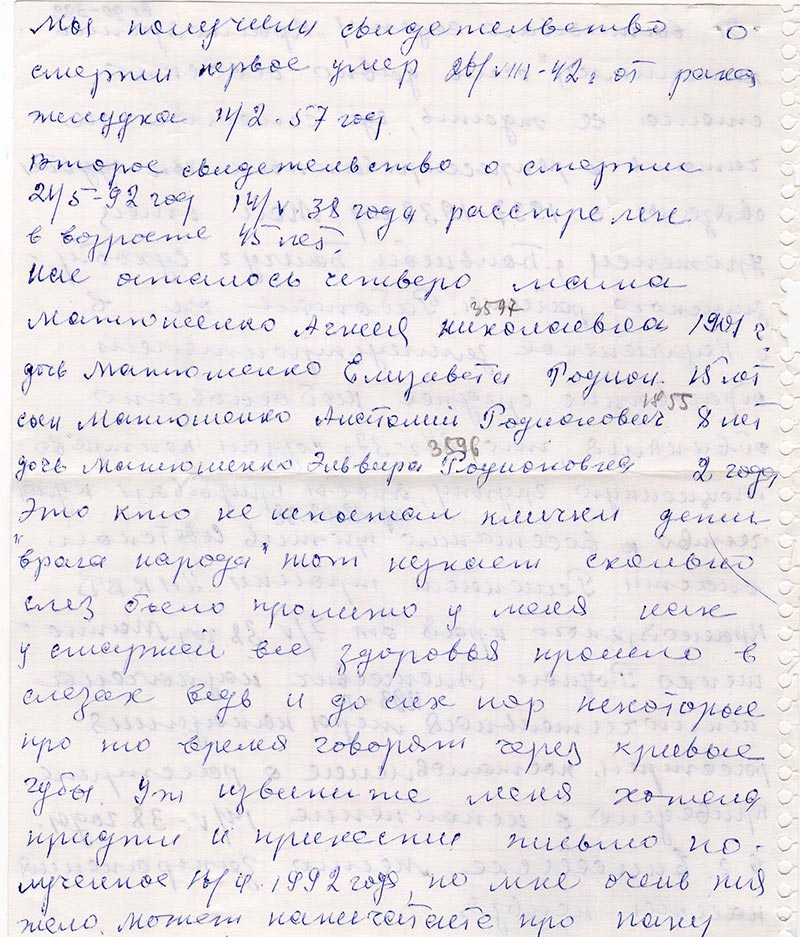 Мы получили свидетельство о
смерти первое умер 26/VIII-42г от рака
желудка 14/2-57 год
второе свидетельство о смерти
21/5-92 год 14/V 38 года расстрелен
в возрасте 45 лет
нас осталось четверо мама
3597
Матюшенко Агния Николаевна 1901 г
дочь Матюшенко Елизавета Родион. 15 лет
1855
сын Матюшенко Анатолий Родионович 8 лет
3596
дочь Матюшенко Эльвира Родионовна 2 года
Это кто не испытал клички дети
"врага народа" тот незнает сколько
слез было пролито у меня как
у старшей все здоровья прошло в
слезах ведь и до сих пор некоторые
про то время говорят через кривые
губы. Уж извините меня хотела
придти и принести письмо по-
лученное 1992 года, но мне очень тя
жело. может напечатаете про папу